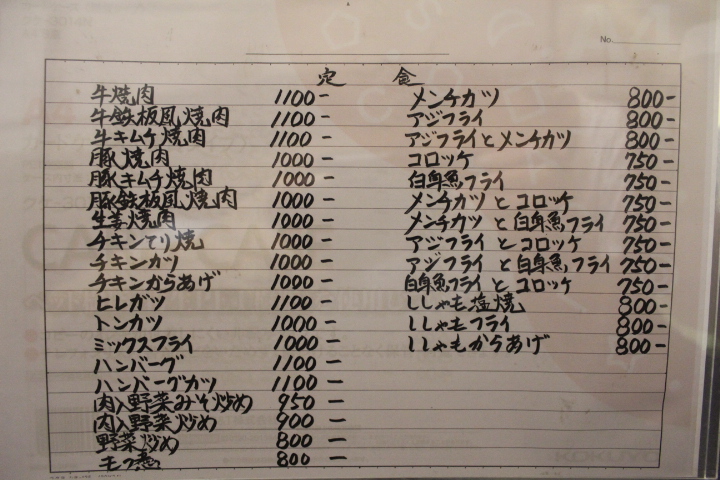 No.
定 食
牛焼肉 1100-
牛鉄板風焼肉 1100-
牛キムチ焼肉 1100-
豚焼肉 1000-
豚キムチ焼肉 1000-
豚鉄板風焼肉 1000-
生姜焼肉 1000-
チキンてり焼 1000-
チキンカツ 1000-
チキンからあげ 1000-
ヒレガツ 1100-
トンカツ 1000-
ミックスフライ 1000-
ハンバーグ 1100-
ハンバーグカツ 1100-
肉入野菜みそ炒め 950-
肉入野菜炒め 900-
野菜炒め 800-
モツ煮 800-
メンチカツ 800-
アジフライ 800-
アジフライとメンチカツ 800-
コロッケ 750-
白身魚フライ 750-
メンチカツとコロッケ 750-
メンチカツと白身魚フライ 750-
アジフライとコロッケ 750-
アジフライと白身魚フライ 750-
白身魚フライとコロッケ 750-
ししゃも塩焼 800-
ししゃもフライ 800-
ししゃもからあげ 800-